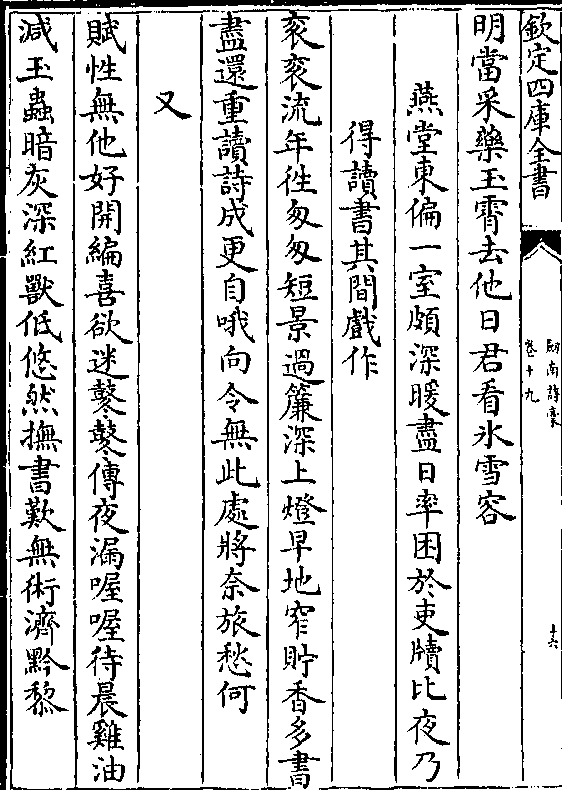 欽定四庫全書
劒南詩槀
卷十九
十六
明當采藥玉霄去他日君看氷雪容
燕堂東偏一室頗深暖盡日率困於吏牘比夜乃
得讀書其間戲作
衮衮流年徃匆匆短景過簾深上燈早地窄貯香多書
盡還重讀詩成更自哦向令無此處將奈旅愁何
又
賦性無他好開編喜欲迷鼕鼕傳夜漏喔喔待晨雞油
減玉蟲暗灰深紅獸低悠然撫書歎無術濟黔黎